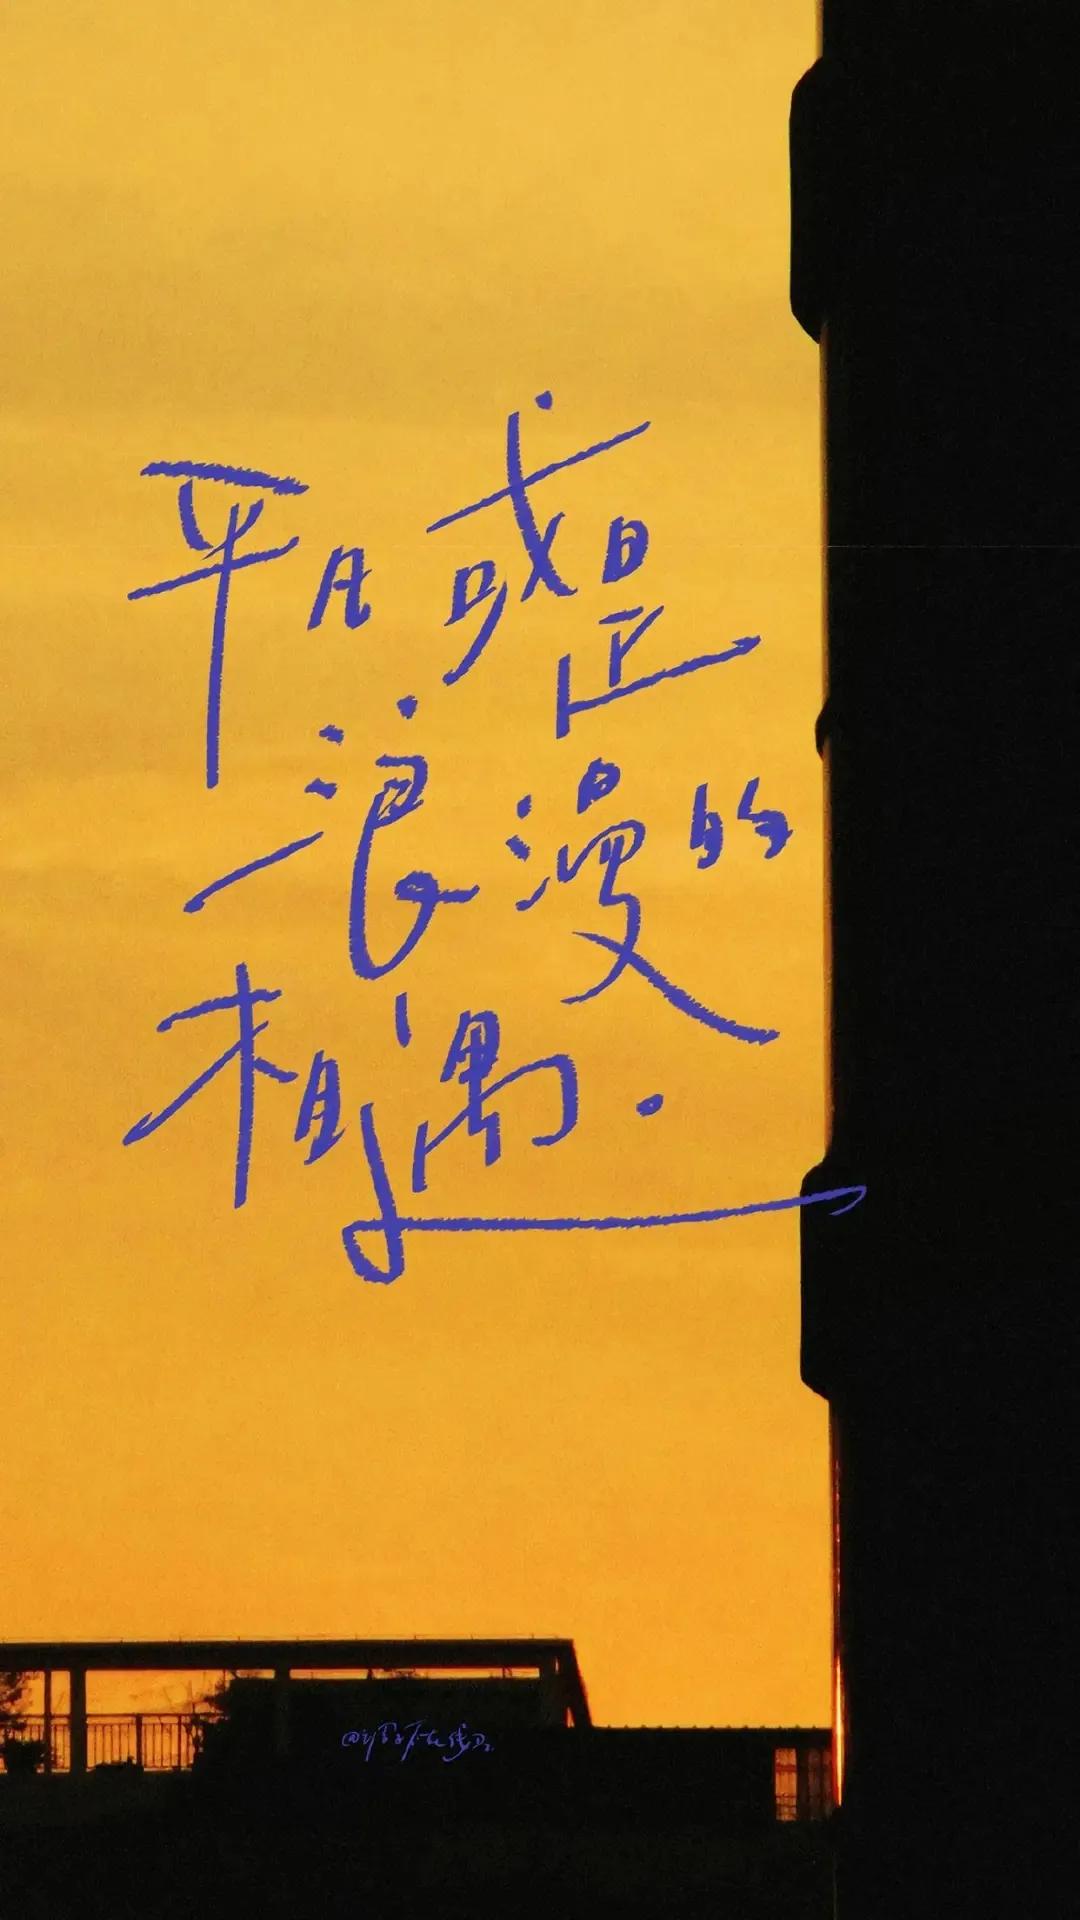 平凡或是
浪漫的
相遇.